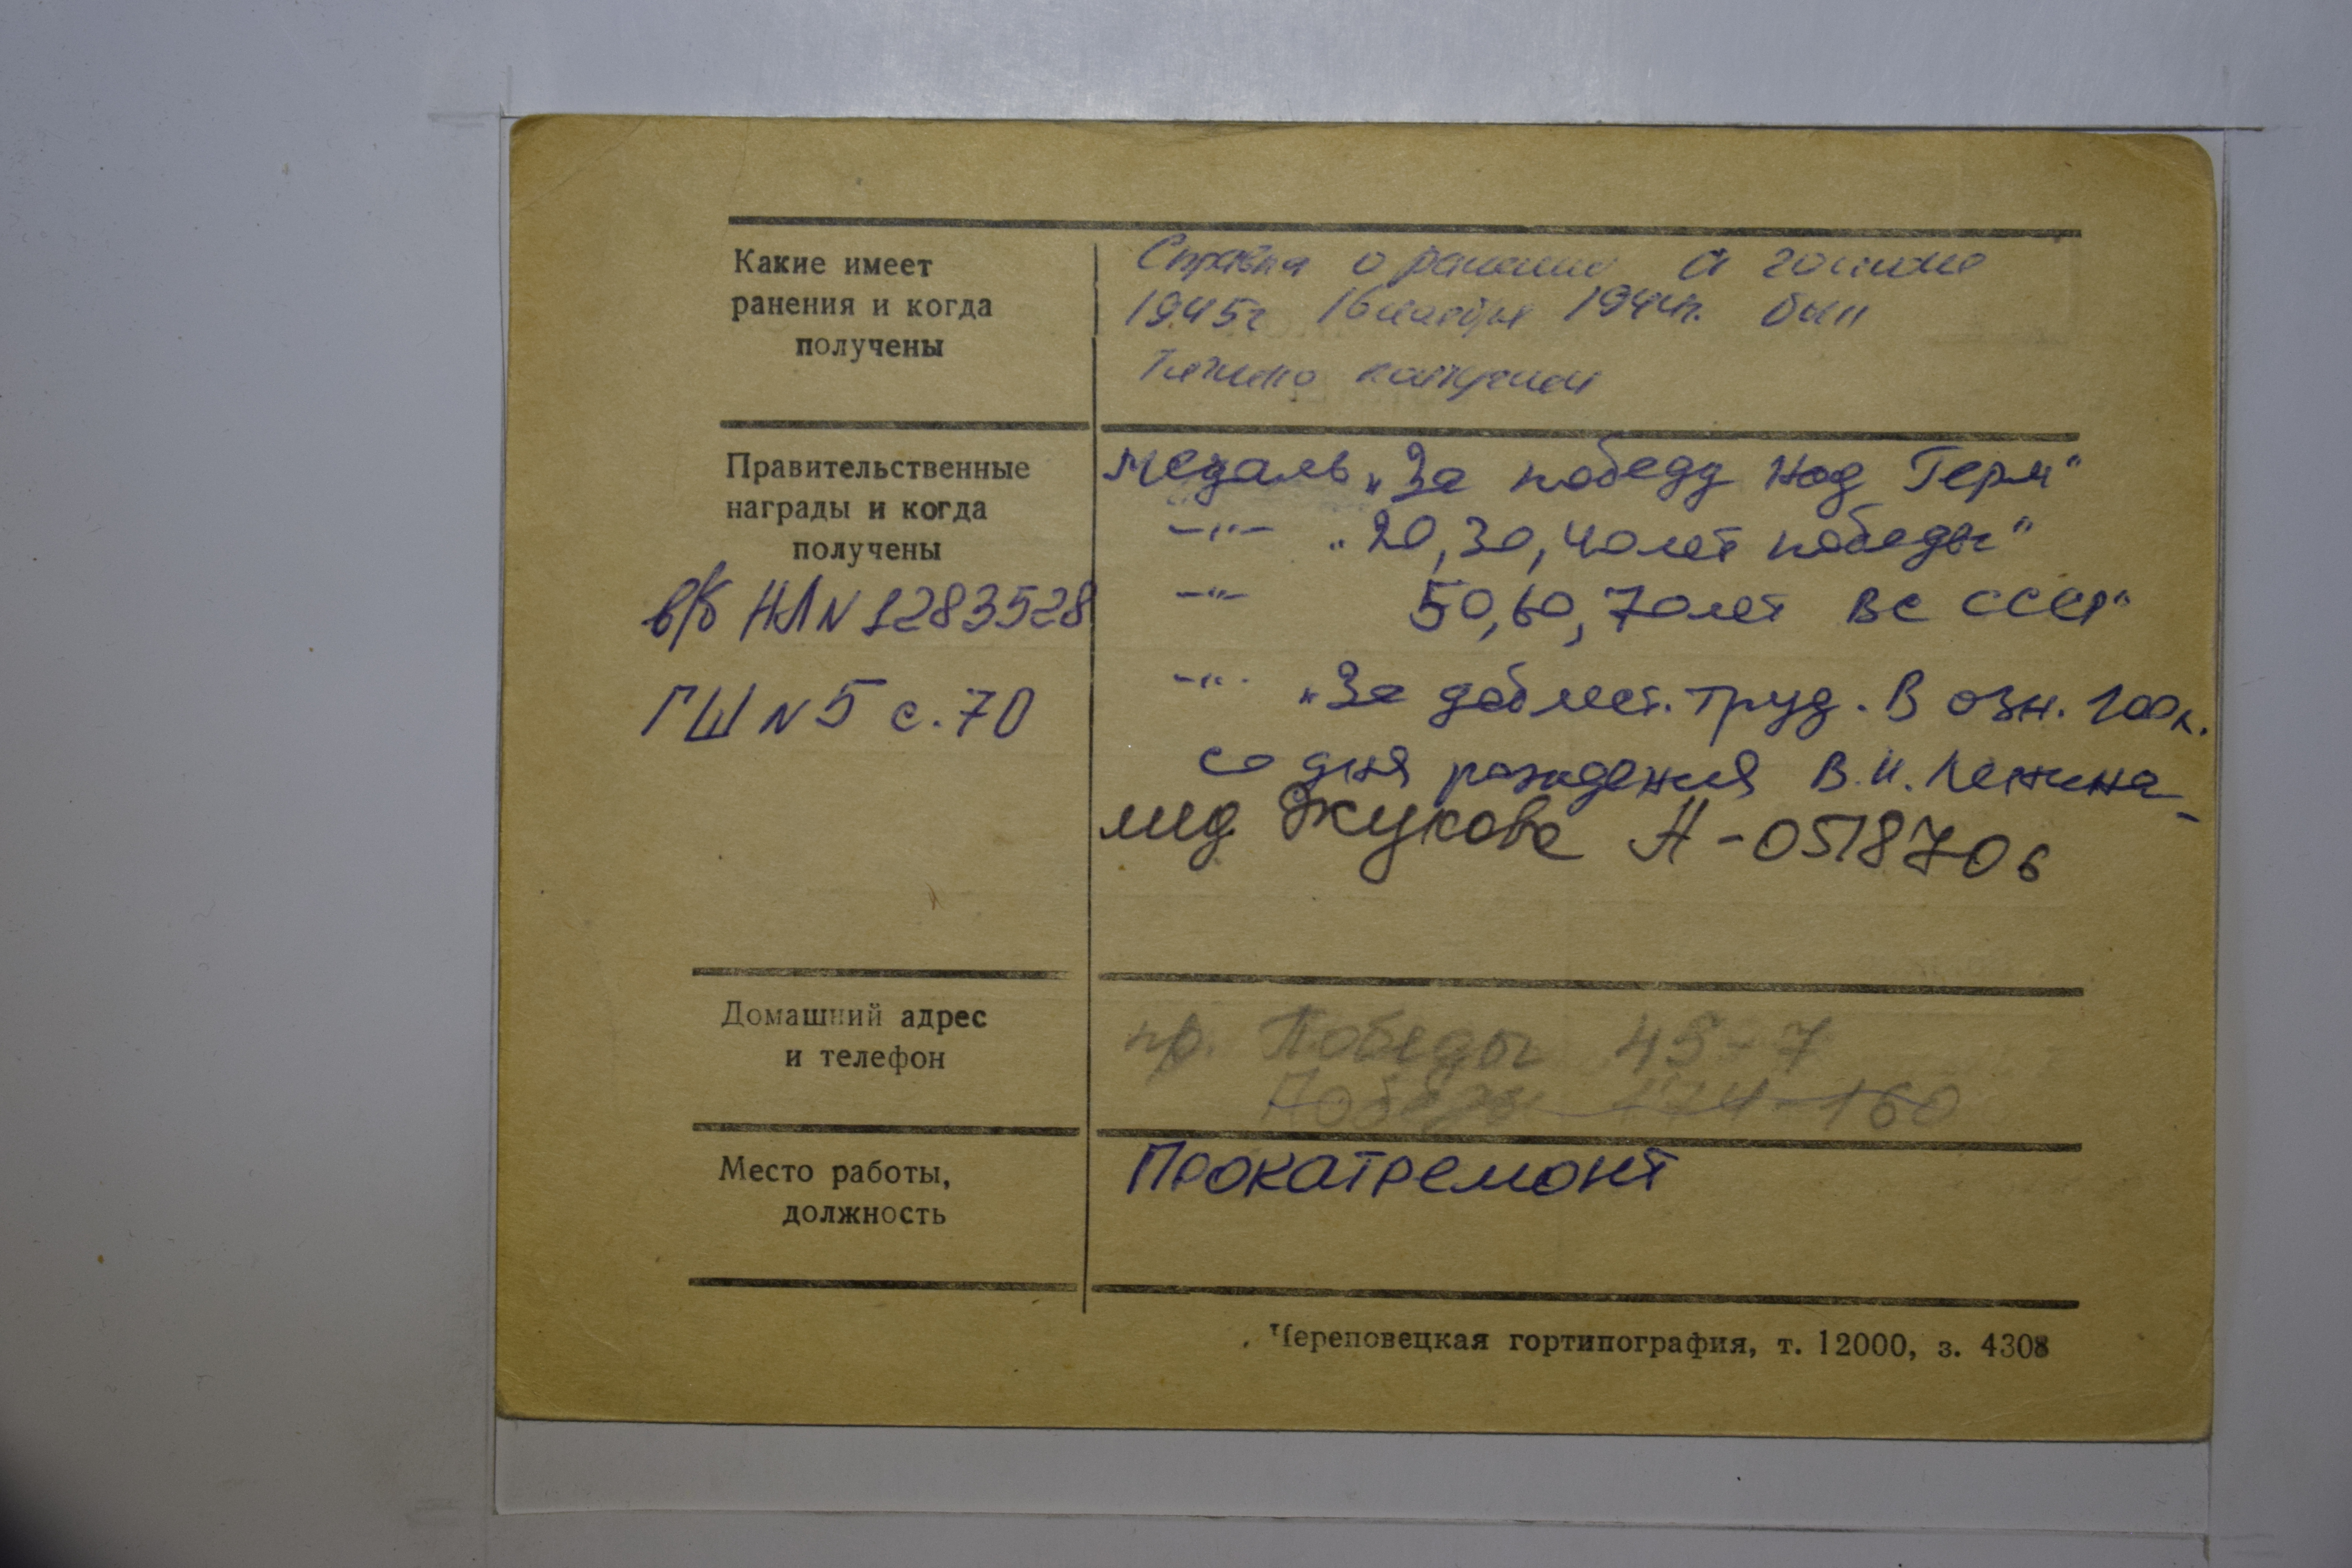 Какие имеет
ранения и когда
получены
Справка о ранении
1945г 16 1944г. был
Тяжело контужен
Правительственные
награды и когда
получены
медаль „За победу над Герм“
–„– „20, 30, 40 лет победы“
–„– 50, 60, 70 лет ВС СССР“
–„– „За доблест. труд. В озн. 100л.
со дня рождения В.И. Ленина
мед Жукова А-0518706
в/б НЛ N 1283528
ГШ N 5 с. 70
Домашний адрес
и телефон
пр. Победы 45-7
Победы 174-160
Место работы,
должность
Прокатремонт
Череповецкая гортипография, т. 12000, з. 4308